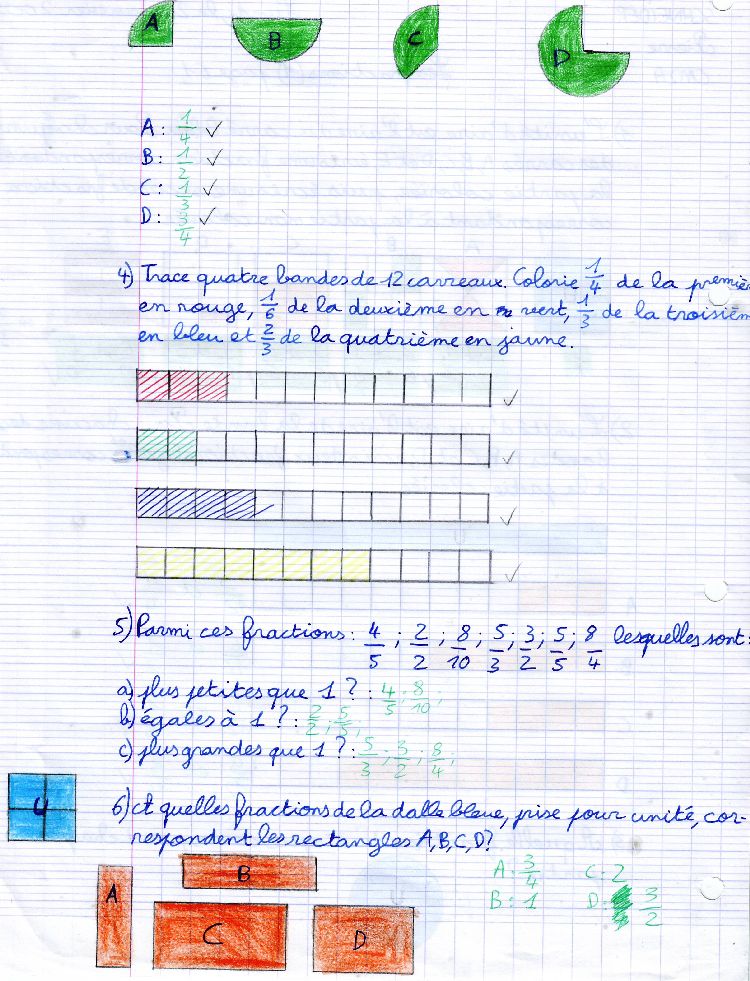 A B C D
A : 1/4 ✓
B : 1/2 ✓
C : 1/3 ✓
D : 3/4 ✓
4) Trace quatre bandes de 12 carreaux. Colorie 1/4 de la premièr
en rouge, 1/6 de la deuxième en vert, 1/3 de la troisièm
en bleu et 2/3 de la quatrième en jaune.
5) Parmi ces fractions : 4/5 ; 2/2 ; 8/10 ; 5/3 ; 3/2 ; 5/5 ; 8/4 lesquelles sont :
a) plus petites que 1 ? : 4/5 ; 8/10 ;
b) égales à 1 ? : 2/2 ; 5/5 ;
c) plus grandes que 1 ? : 5/3 ; 3/2 ; 8/4 ;
U
6) A quelles fractions de la dalle bleue, prise pour unité, cor-
respondent les rectangles A, B, C, D ?
A : 3/4 C : 2
B : 1 D : 3/2
A B
C D